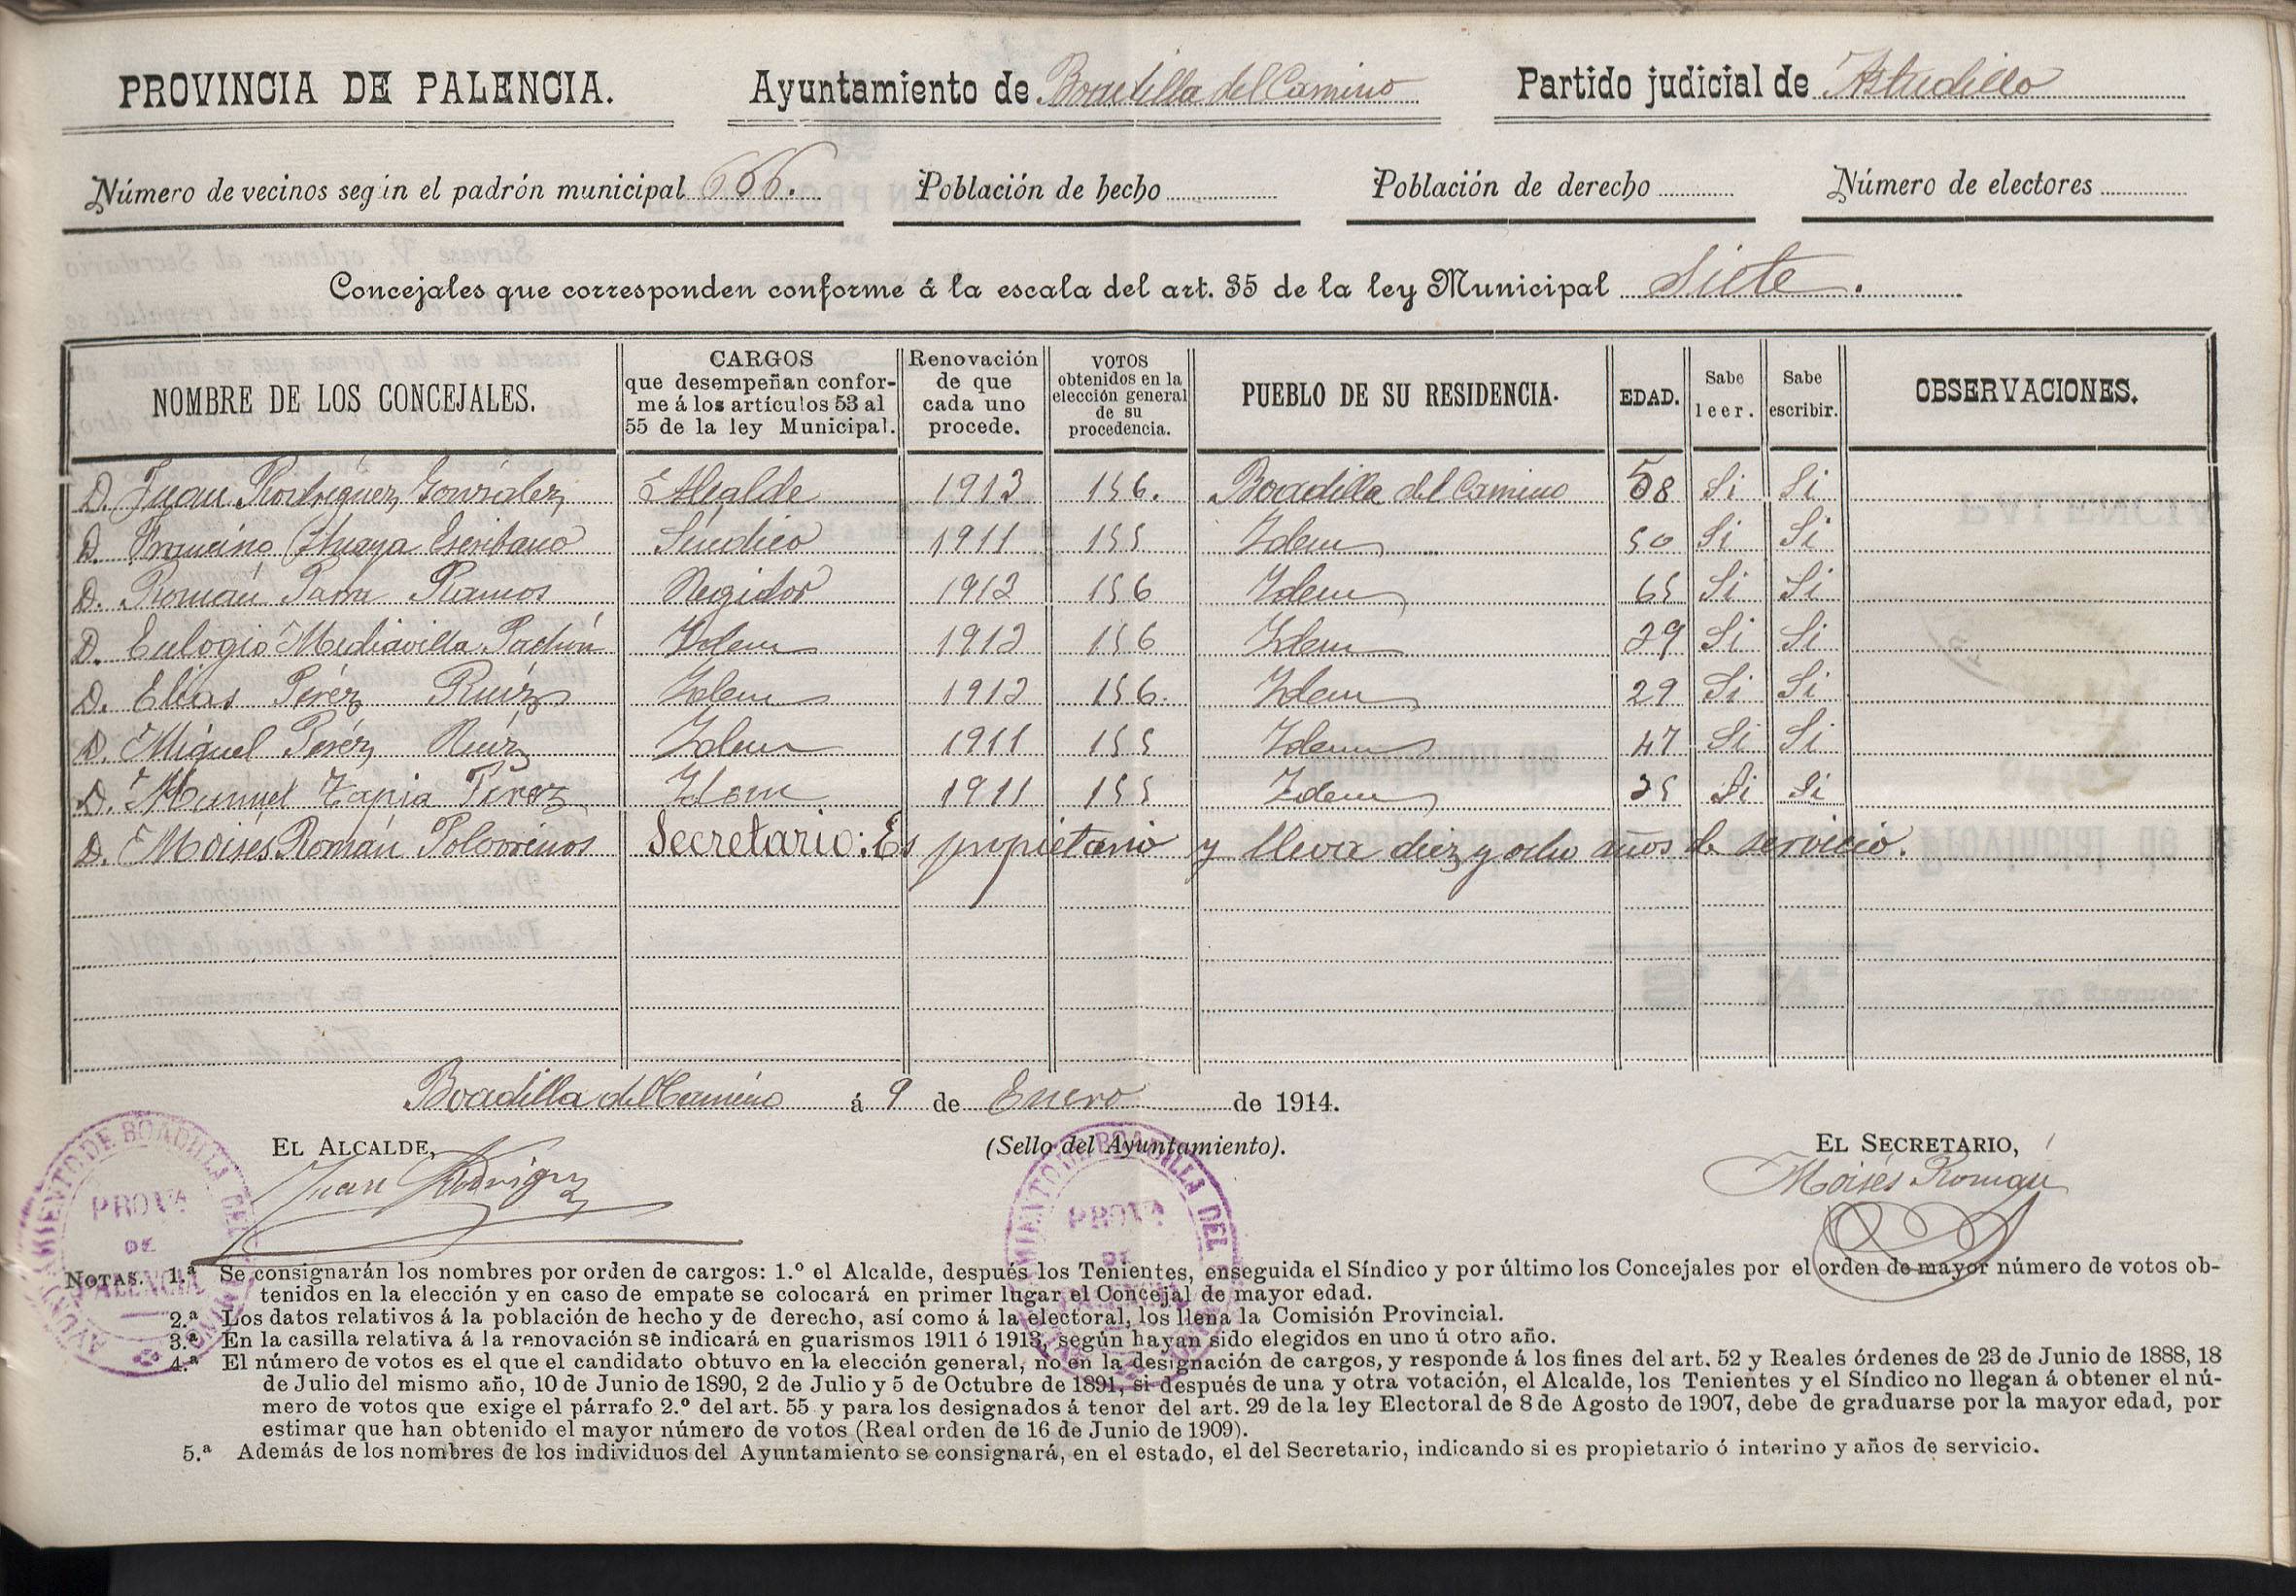 PROVINCIA DE PALENCIA. Ayuntamiento de Boadilla del Camino Partido judicial de Astudillo
Número de vecinos según el padrón municipal 666. Población de hecho Población de derecho Número de electores
Concejales que corresponden conforme á la escala del art. 35 de la ley Municipal Siete.
NOMBRE DE LOS CONCEJALES. CARGOS que desempeñan conforme á los artículos 53 al 55 de la ley Municipal. Renovación de que cada uno procede. VOTOS obtenidos en la elección general de su procedencia. PUEBLO DE SU RESIDENCIA. EDAD. Sabe leer. Sabe escribir. OBSERVACIONES.
D. Juan Rodríguez González Alcalde 1913 156. Boadilla del Camino 58 Si Si
D. Escribano Síndico 1911 155 Idem 50 Si Si
D. Román Parra Ramos Regidor 1913 156 Idem 65 Si Si
D. Eulogio Mediavilla Pachón Idem 1913 156 Idem 39 Si Si
D. Elias Peréz Ruíz Idem 1913 156. Idem 29 Si Si
D. Miguel Peréz Ruíz Idem 1911 155 Idem 47 Si Si
D. Manuel Tapia Pérez Idem 1911 155 Idem 35 Si Si
D. Moisés Román Polvorinos Secretario: Es propietario y lleva diez y ocho años de servicio.
Boadilla del Camino á 9 de Enero de 1914.
EL ALCALDE, (Sello del Ayuntamiento). EL SECRETARIO,
Juan Rodríguez Moisés Román
AYUNTAMIENTO DE BOADILLA DEL CAMINO PROVA DE PALENCIA
AYUNTAMIENTO DE BOADILLA DEL CAMINO PROVA DE PALENCIA
NOTAS. 1.ª Se consignarán los nombres por orden de cargos: 1.º el Alcalde, después los Tenientes, enseguida el Síndico y por último los Concejales por el orden de mayor número de votos ob-
tenidos en la elección y en caso de empate se colocará en primer lugar el Concejal de mayor edad.
2.ª Los datos relativos á la población de hecho y de derecho, así como á la electoral, los llena la Comisión Provincial.
3.ª En la casilla relativa á la renovación se indicará en guarismos 1911 ó 1913, según hayan sido elegidos en uno ú otro año.
4.ª El número de votos es el que el candidato obtuvo en la elección general, no en la designación de cargos, y responde á los fines del art. 52 y Reales órdenes de 23 de Junio de 1888, 18
de Julio del mismo año, 10 de Junio de 1890, 2 de Julio y 5 de Octubre de 1891, si después de una y otra votación, el Alcalde, los Tenientes y el Síndico no llegan á obtener el nú-
mero de votos que exige el párrafo 2.º del art. 55 y para los designados á tenor del art. 29 de la ley Electoral de 8 de Agosto de 1907, debe de graduarse por la mayor edad, por
estimar que han obtenido el mayor número de votos (Real orden de 16 de Junio de 1909).
5.ª Además de los nombres de los individuos del Ayuntamiento se consignará, en el estado, el del Secretario, indicando si es propietario ó interino y años de servicio.